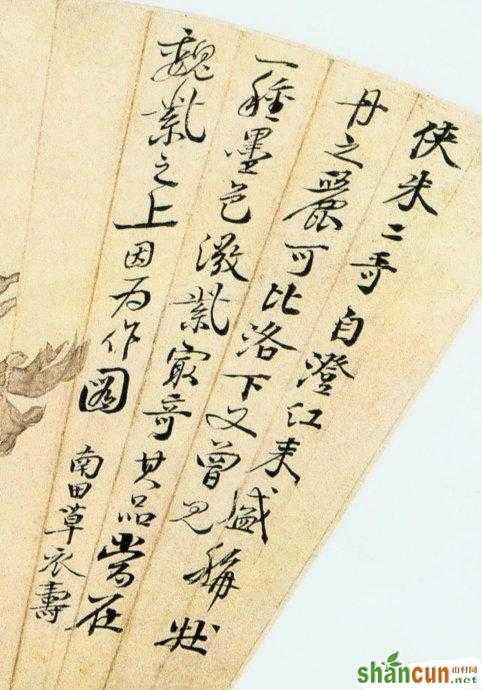 侠朱二哥自澄江来盛称牡
丹之麗可比洛下又曾見
一種墨色潑紫最奇其品當在
魏紫之上因为作圖
南田草衣壽
shancun 山村网
.net